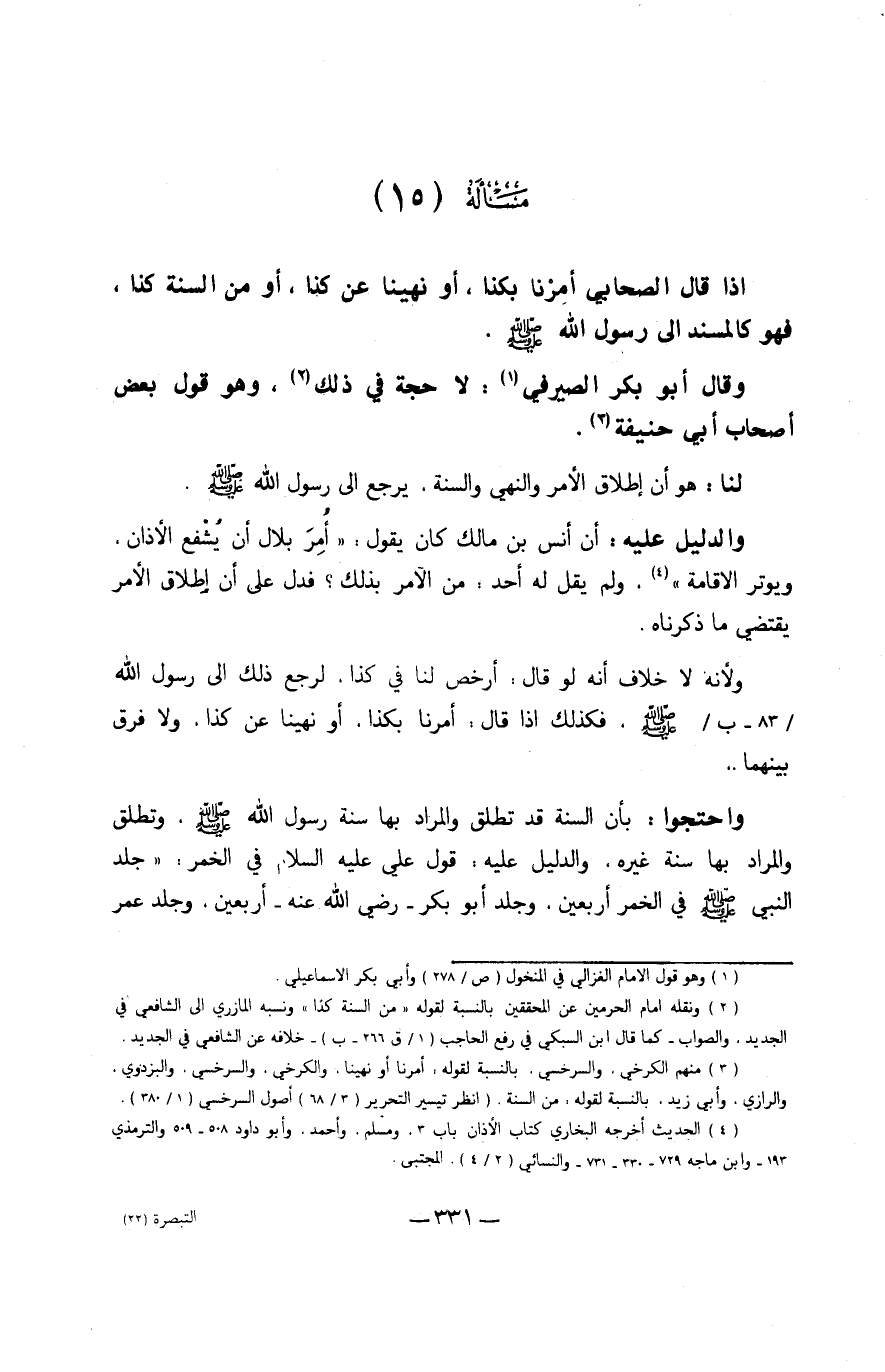 مسألة (١٥)
اذا قال الصحابي أمِرْنا بكذا ، أو نهينا عن كذا ، أو من السنة كذا ،
فهو كالمسند الى رسول الله ﷺ .
وقال أبو بكر الصيرفي(١) : لا حجة في ذلك(٢) ، وهو قول بعض
أصحاب أبي حنيفة(٣) .
لنا : هو أن إطلاق الأمر والنهي والسنة ، يرجع الى رسول الله ﷺ .
والدليل عليه : أن أنس بن مالك كان يقول : « أُمِرَ بلال أن يُشْفع الأذان ،
ويوتر الاقامة »(٤) ، ولم يقل له أحد : من الآمر بذلك ؟ فدل على أن إطلاق الأمر
يقتضي ما ذكرناه .
ولأنه لا خلاف أنه لو قال : أرخص لنا في كذا ، لرجع ذلك الى رسول الله
/ ٨٣ ـ ب / ﷺ ، فكذلك اذا قال : أمرنا بكذا ، أو نهينا عن كذا ، ولا فرق
بينهما ..
واحتجوا : بأن السنة قد تطلق والمراد بها سنة رسول الله ﷺ ، وتطلق
والمراد بها سنة غيره ، والدليل عليه : قول علي عليه السلام في الخمر : « جلد
النبي ﷺ في الخمر أربعين ، وجلد أبو بكر ـ رضي الله عنه ـ أربعين ، وجلد عمر
( ١ ) وهو قول الامام الغزالي في المنخول ( ص / ٢٧٨ ) وأبي بكر الاسماعيلي .
( ٢ ) ونقله امام الحرمين عن المحققين بالنسبة لقوله « من السنة كذا » ونسبه المازري الى الشافعي في
الجديد ، والصواب ـ كما قال ابن السبكي في رفع الحاجب ( ١ / ق ٢٦٦ ـ ب ) ـ خلافه عن الشافعي في الجديد .
( ٣ ) منهم الكرخي ، والسرخسي ، بالنسبة لقوله : أمرنا أو نهينا ، والكرخي ، والسرخسي ، والبزدوي ،
والرازي ، وأبي زيد ، بالنسبة لقوله : من السنة . ( انظر تيسير التحرير ( ٣ / ٦٨ ) أصول السرخسي ( ١ / ٣٨٠ ) .
( ٤ ) الحديث أخرجه البخاري كتاب الأذان باب ٣ ، ومسلم ، وأحمد ، وأبو داود ٥٠٨ ـ ٥٠٩ والترمذي
١٩٣ ـ وابن ماجه ٧٢٩ ـ ٣٣٠ ـ ٧٣١ ـ والنسائي ( ٢ / ٤ ) . المجتبى .
ـ ٣٣١ ـ
التبصرة (٢٢)